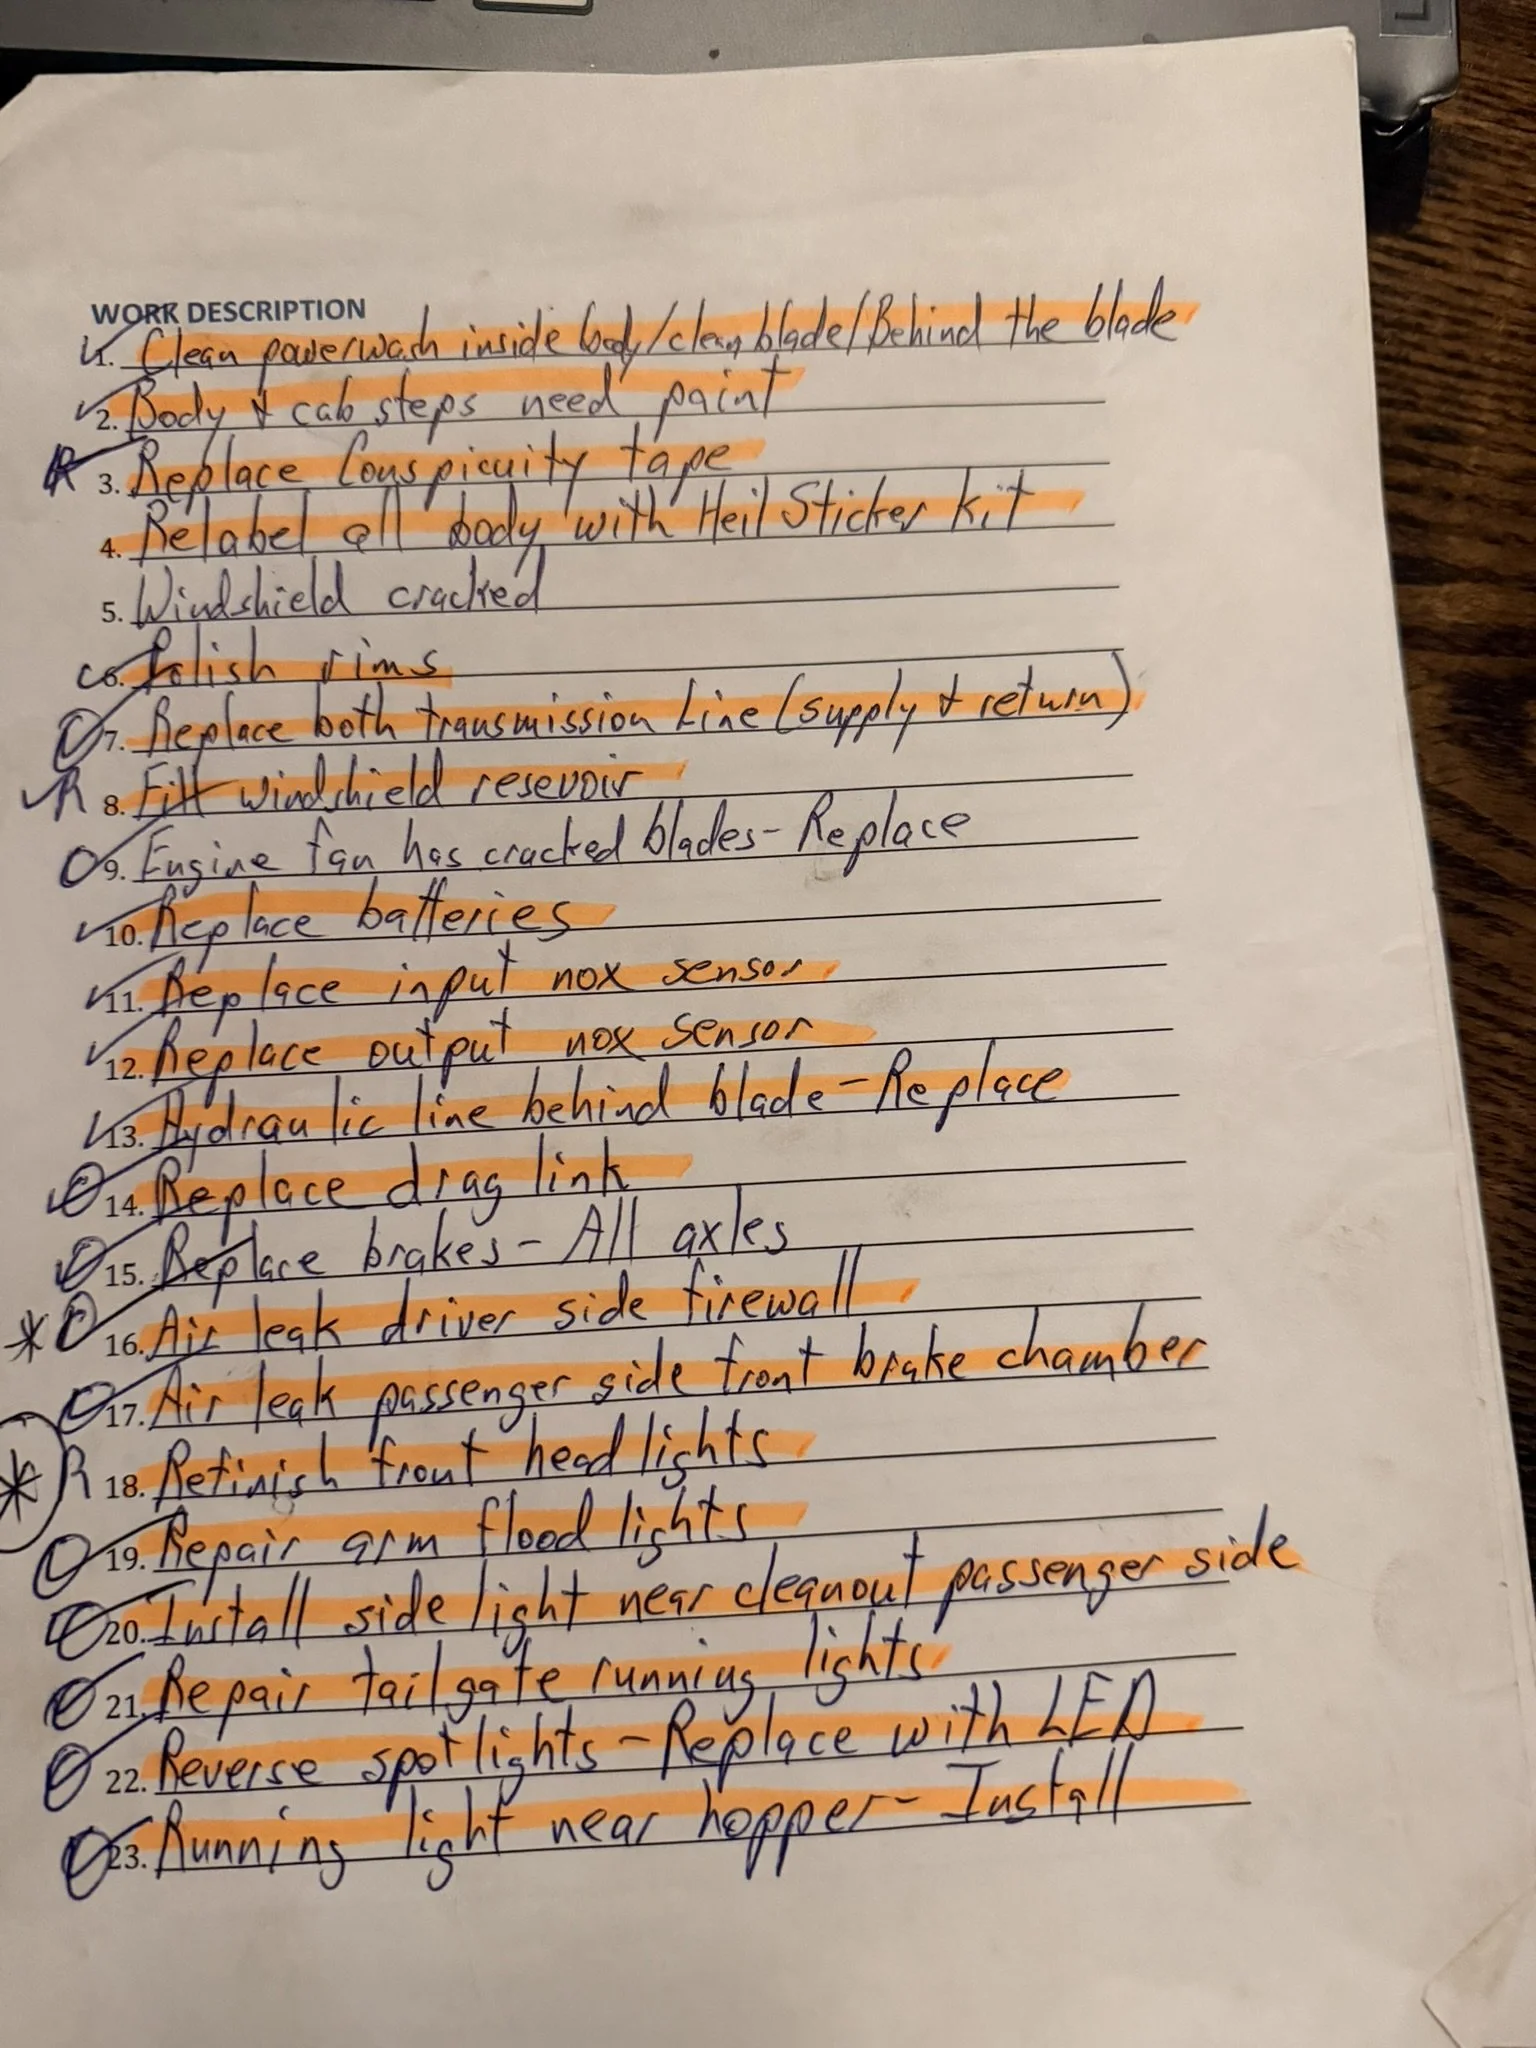 WORK DESCRIPTION
1. Clean powerwash inside body/clean blade/Behind the blade
2. Body & cab steps need paint
R 3. Replace Conspicuity tape
4. Relabel all body with Heil Sticker kit
5. Windshield cracked
6. Polish rims
7. Replace both transmission Line (supply & return)
R 8. Fill windshield resevoir
9. Engine fan has cracked blades - Replace
10. Replace batteries
11. Replace input nox sensor
12. Replace output nox sensor
13. Hydraulic line behind blade - Replace
14. Replace drag link
15. Replace brakes - All axles
* 16. Air leak driver side firewall
17. Air leak passenger side front brake chamber
* R 18. Refinish front headlights
19. Repair arm flood lights
20. Install side light near cleanout passenger side
21. Repair tailgate running lights
22. Reverse spotlights - Replace with LED
23. Running light near hopper - Install